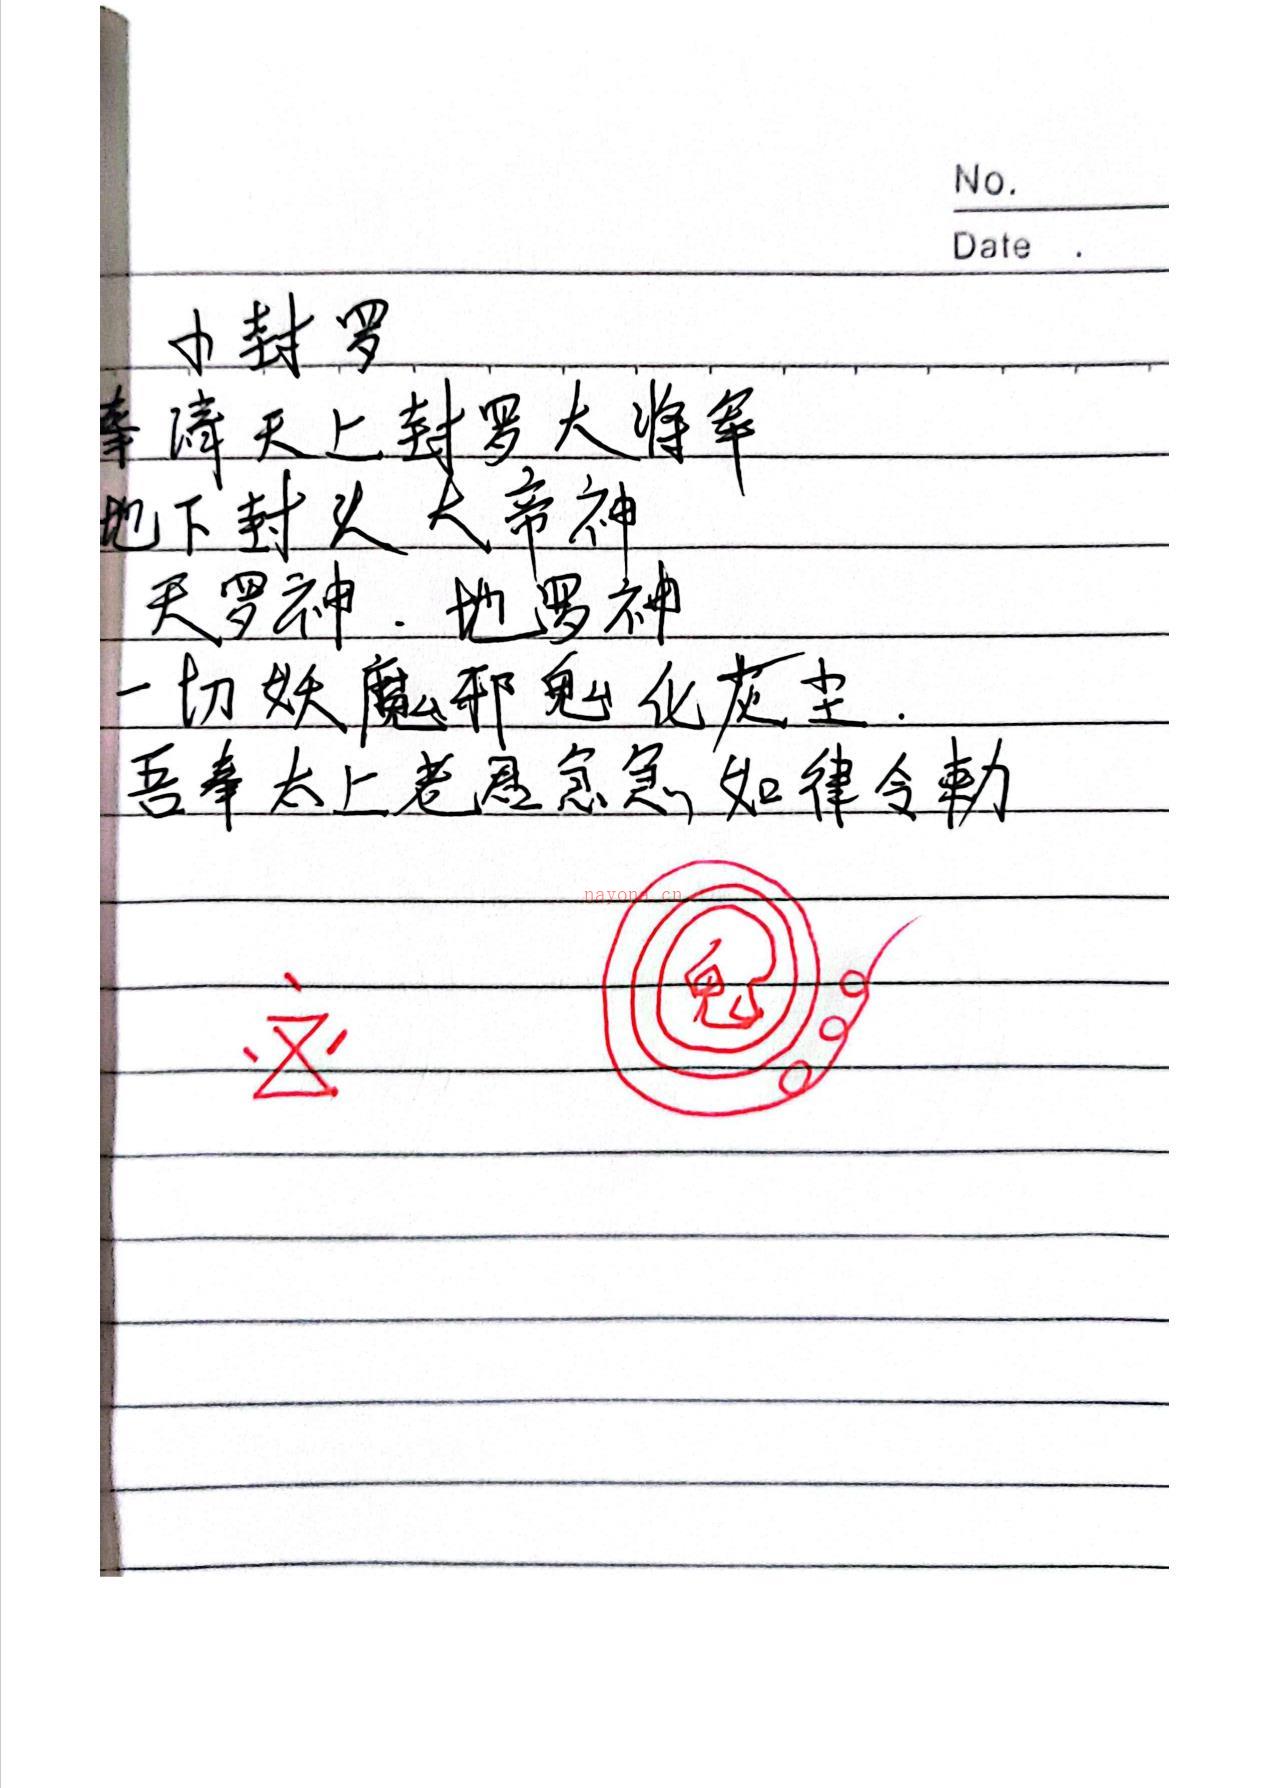 No.
Date .
小封罗
奉请天上封罗大将军
地下封头大帝神
天罗神．地罗神
一切妖魔邪鬼化灰尘．
吾奉太上老君急急如律令勅
nayona.cn
鬼